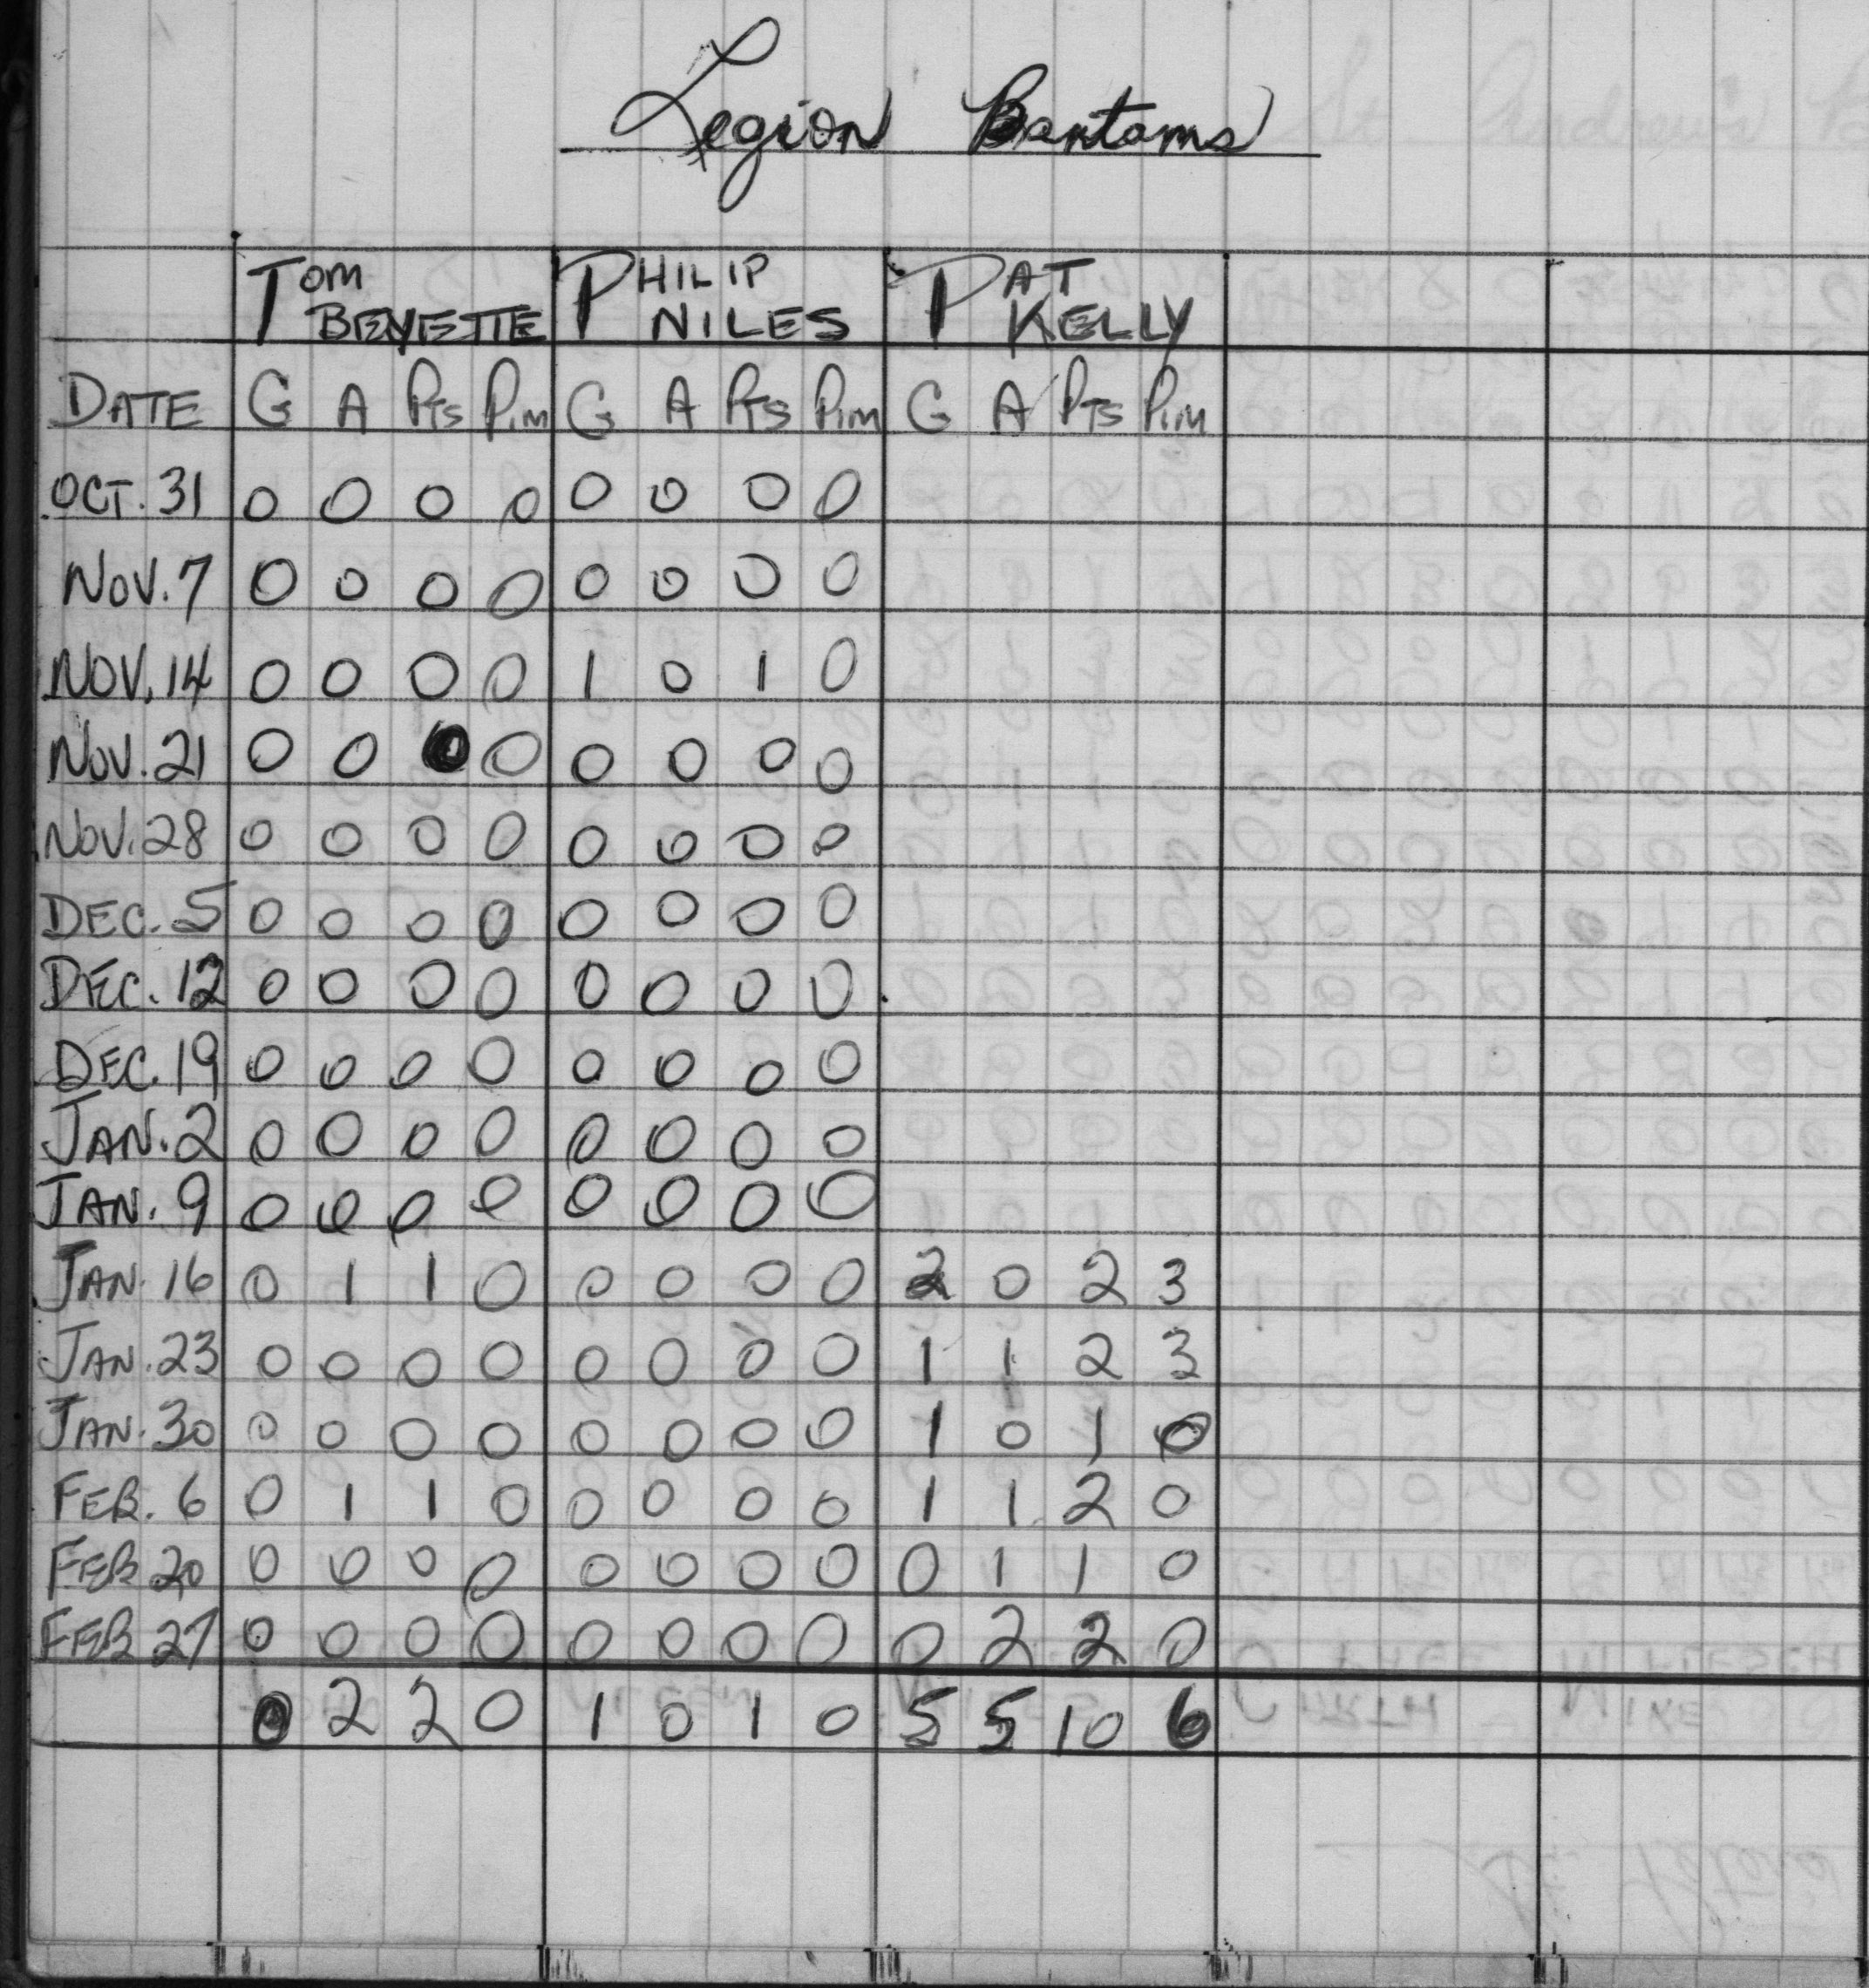 Legion Bantams
TOM BEYETTE PHILIP NILES PAT KELLY
DATE G A PTS PIM G A PTS PIM G A PTS PIM
OCT. 31 0 0 0 0 0 0 0 0
NOV. 7 0 0 0 0 0 0 0 0
NOV. 14 0 0 0 0 1 0 1 0
NOV. 21 0 0 0 0 0 0 0 0
NOV. 28 0 0 0 0 0 0 0 0
DEC. 5 0 0 0 0 0 0 0 0
DEC. 12 0 0 0 0 0 0 0 0
DEC. 19 0 0 0 0 0 0 0 0
JAN. 2 0 0 0 0 0 0 0 0
JAN. 9 0 0 0 0 0 0 0 0
JAN. 16 0 1 1 0 0 0 0 0 2 0 2 3
JAN. 23 0 0 0 0 0 0 0 0 1 1 2 3
JAN. 30 0 0 0 0 0 0 0 0 1 0 1 0
FEB. 6 0 1 1 0 0 0 0 0 1 1 2 0
FEB 20 0 0 0 0 0 0 0 0 0 1 1 0
FEB 27 0 0 0 0 0 0 0 0 0 2 2 0
0 2 2 0 1 0 1 0 5 5 10 6